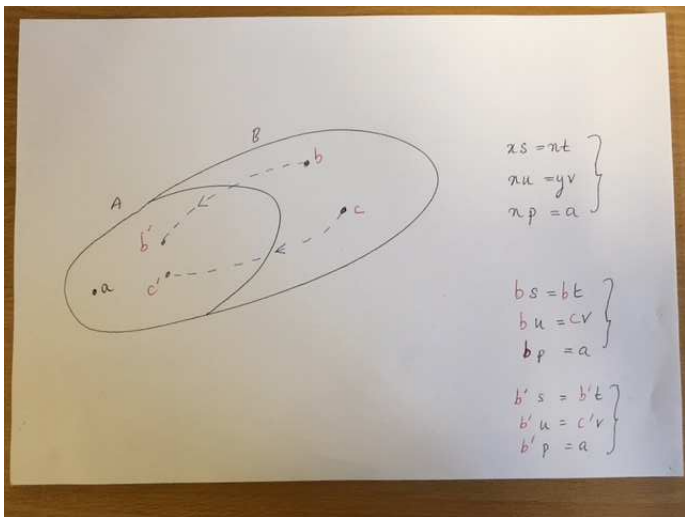 B
b
A
b'
c
c'
a
xs = xt
xu = yv
xp = a
bs = bt
bu = cv
bp = a
b's = b't
b'u = c'v
b'p = a